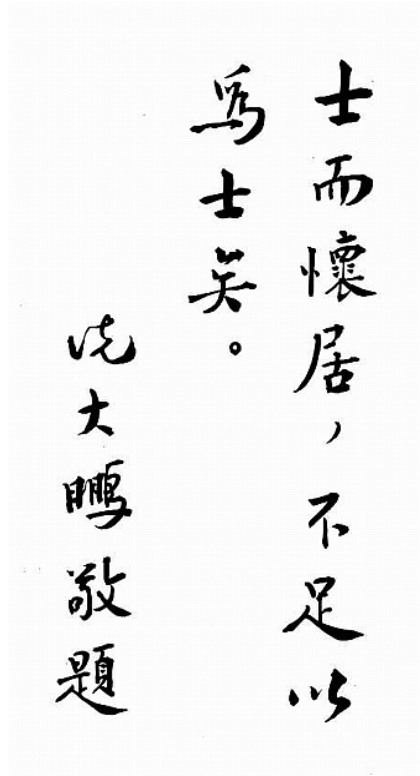 士而懷居，不足以
爲士矣。
冼大鵬敬題